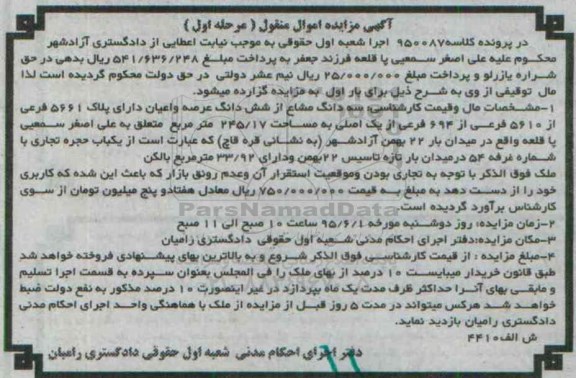 آگهی مزایده اموال منقول ( مرحله اول )
در پرونده کلاسه۹۵۰۰۸۷ اجرا شعبه اول حقوقی به موجب نیابت اعطایی از دادگستری آزادشهر
محکوم علیه علی اصغر سمعیی پا قلعه فرزند جعفر به پرداخت مبلغ ۵۴۱/۶۳۶/۲۴۸ ریال بدهی در حق
شراره یازرلو و پرداخت مبلغ ۲۵/۰۰۰/۰۰۰ ریال نیم عشر دولتی در حق دولت محکوم گردیده است لذا
مال توقیفی از وی به شرح ذیل برای بار اول به مزایده گزارده میشود.
۱-مشخصات مال وقیمت کارشناسی: سه دانگ مشاع از شش دانگ عرصه واعیان دارای پلاک ۵۶۶۱ فرعی
از ۵۶۱۰ فرعی از ۶۹۴ فرعی از یک اصلی به مساحت ۲۴۵/۱۷ متر مربع متعلق به علی اصغر سمعیی
پا قلعه واقع در میدان بار ۲۲ بهمن آزادشهر (به نشانی قره قاچ) که عبارت است از یکباب حجره تجاری با
شماره غرفه ۵۴ درمیدان بار تازه تاسیس ۲۲بهمن ودارای ۳۳/۹۲ مترمربع بالکن
ملک فوق الذکر با توجه به تجاری بودن وموقعیت استقرار آن وعدم رونق بازار که باعث این شده که کاربری
خود را از دست دهد به مبلغ به قیمت ۷۵۰/۰۰۰/۰۰۰ ریال معادل هفتادو پنج میلیون تومان از سوی
کارشناس برآورد گردیده است.
ParsNamadData
۲-زمان مزایده: روز دوشنبه مورخه ۹۵/۶/۱ ساعت ۱۰ صبح الی ۱۱ صبح
۳-مکان مزایده:دفتر اجرای احکام مدنی شعبه اول حقوقی دادگستری رامیان
۴-مبلغ مزایده : از قیمت کارشناسی فوق الذکر شروع و به بالاترین بهای پیشنهادی فروخته خواهد شد
طبق قانون خریدار میبایست ۱۰ درصد از بهای ملک را فی المجلس بعنوان سپرده به قسمت اجرا تسلیم
و مابقی بهای آنرا حداکثر ظرف مدت یک ماه بپردازد درغیر اینصورت ۱۰ درصد مذکور به نفع دولت ضبط
خواهد شد هرکس میتواند در مدت ۵ روز قبل از مزایده از ملک با هماهنگی واحد اجرای احکام مدنی
دادگستری رامیان بازدید نماید.
ش الف ۴۴۱۰
دفتر اجرای احکام مدنی شعبه اول حقوقی دادگستری رامیان